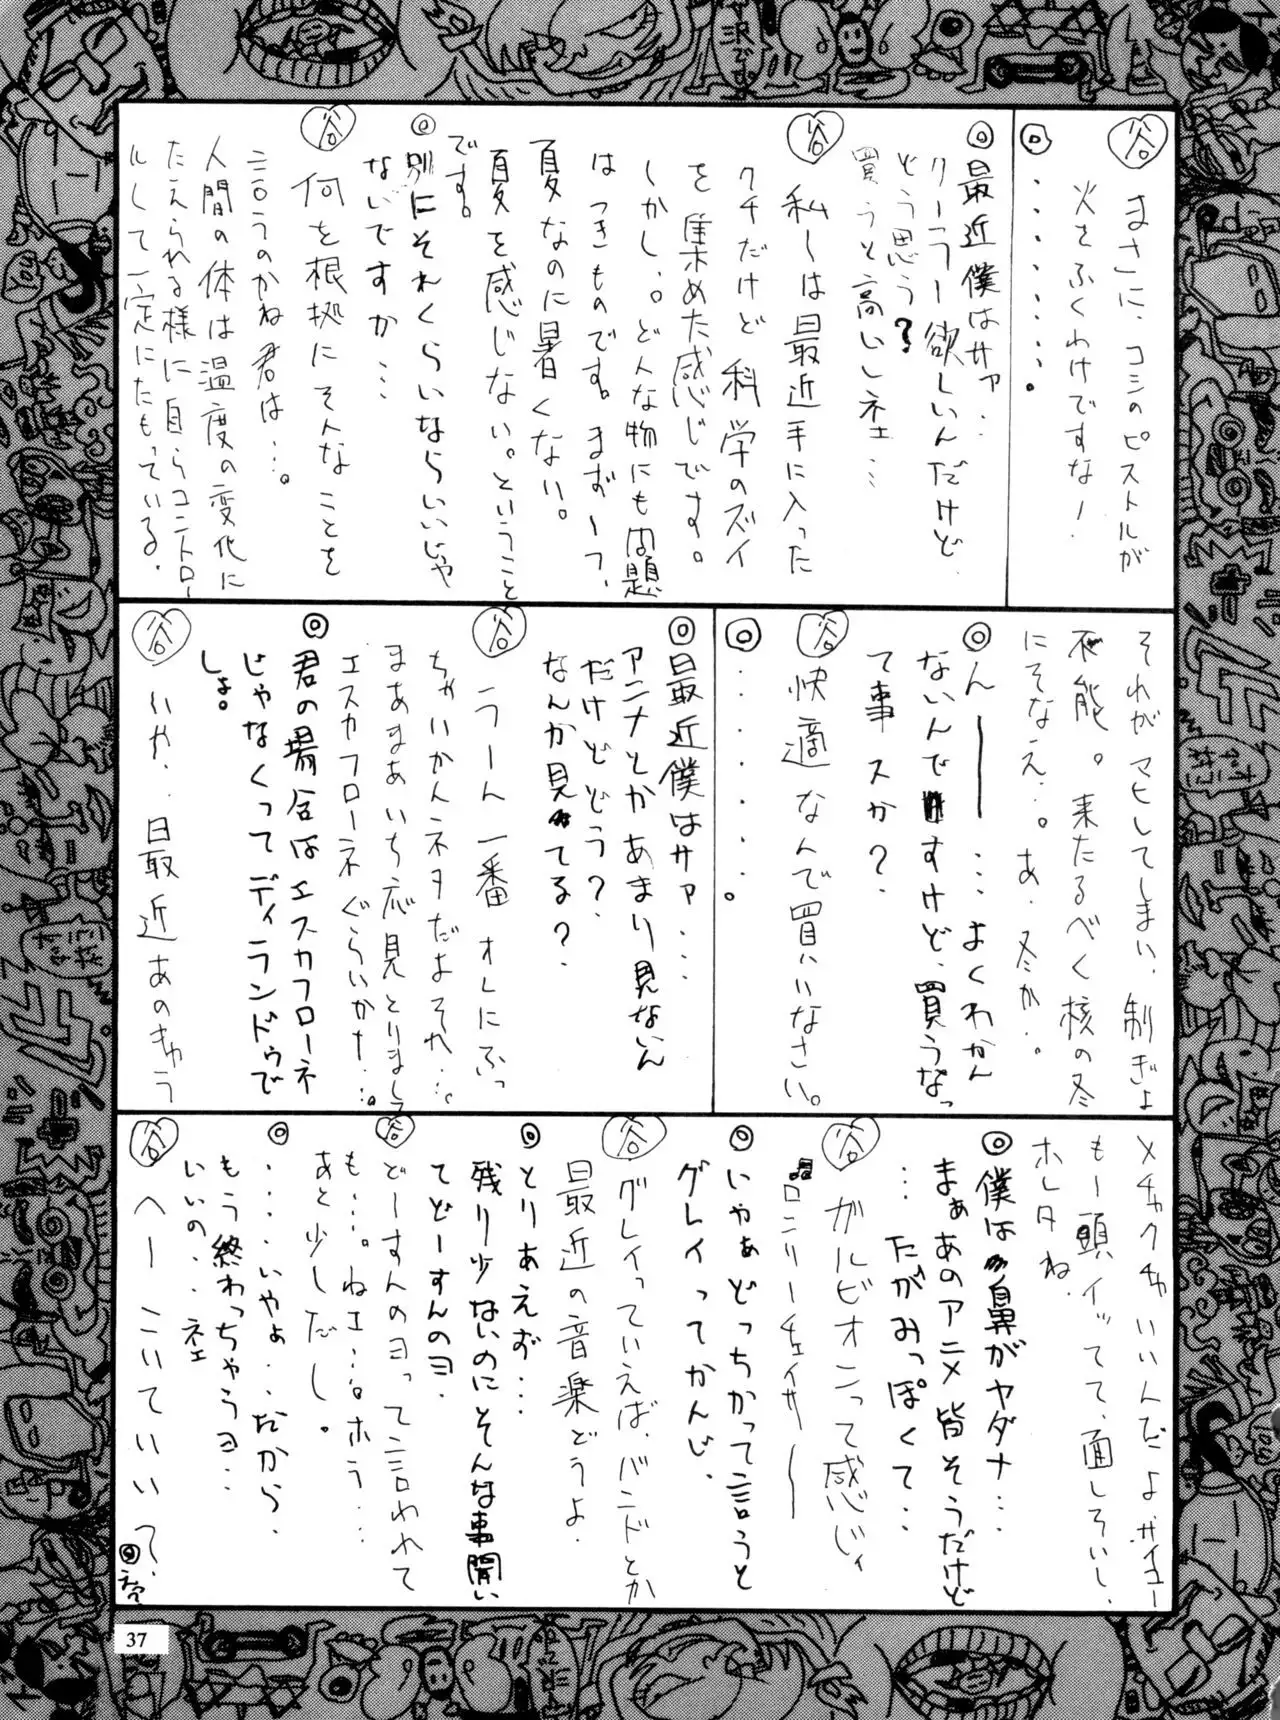 谷 まさに、コシのピストルが
火をふくわけですな!
◎ ・・・・・・・・。
◎ 最近僕はサァ…
クーラー欲しいんだけど
どう思う?
買うと高いしネェ…
谷 私〜は最近手に入った
クチだけど科学のズイ
を集めた感じです。
しかし。どんな物にも問題
はつきものです。まず一つ、
夏なのに暑くない。
夏を感じない。ということ
です。
◎ 別にそれくらいならいいじゃ
ないですか…
谷 何を根拠にそんなことを
言うのかね君は…。
人間の体は温度の変化に
たえられる様に自らコントロー
ルして一定にたもっている。
それがマヒしてしまい、制ぎょ
不能。来たるべく核の冬
にそなえ…。あ、冬か。
◎ ん――…よくわかん
ないんですけど、買うなっ
て事スか?
谷 快適なんで買いなさい。
◎ ・・・・・・。
◎ 最近僕はサァ…
アニメとかあまり見ないん
だけどどう?
なんか見てる?
谷 うーん一番オレにふっ
ちゃいかんネタだよそれ…。
まあまあいち応見とりまして
エスカフローネぐらいか!…。
◎ 君の場合はエスカフローネ
じゃなくってディランドゥで
しょ。
谷 いや、最近あのきゅう
メチャクチャいいんだよ。サイコー
もー頭イッてて、面しろいし、
ホレタね。
◎ 僕は鼻がヤダナ…
まぁあのアニメ皆そうだけど
…たがみっぽくて…
谷 ガルビオンって感じィ
♬ロンリーチェイサー〜
◎ いやぁどっちかって言うと
グレイってかんじ、
谷 グレイっていえば、バンドとか
最近の音楽どうよ.
◎ とりあえず…
残り少ないのにそんな事聞い
てどーすんのヨ.
谷 どーすんのヨって言われて
も…。ねエ…。ホう…
あと少しだし。
◎ …・いやょ…だから.
もう終わっちゃうヨ…
いいの…ネェ
谷 へー こいていい?
◎
37